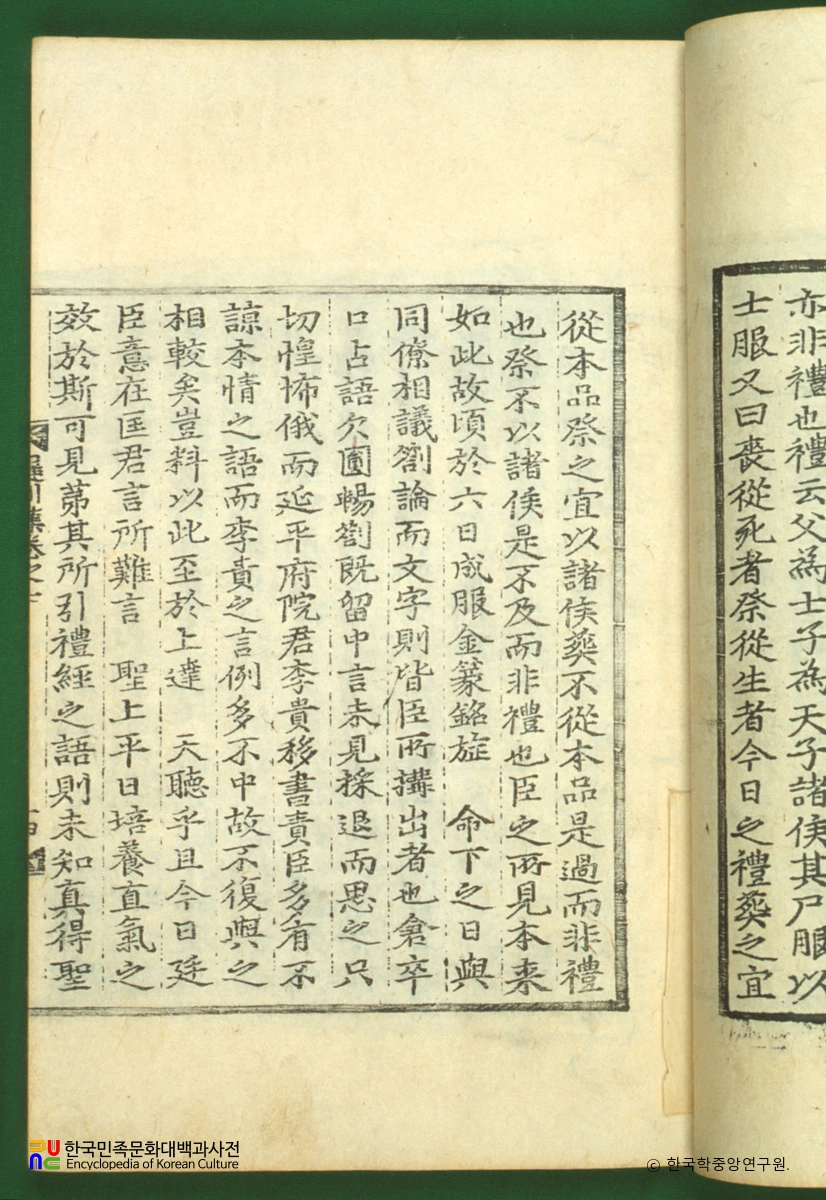 亦非禮也禮云父為士子為天子諸侯其尸服以
士服又曰喪從死者祭從生者今日之禮葬之宜
從本品祭之宜以諸侯葬不從本品是過而非禮
也祭不以諸侯是不及而非禮也臣之所見本來
如此故頃於六日成服金篆銘旌 命下之日與
同僚相議箚論而文字則皆臣所搆出者也倉卒
口占語欠圓暢箚既留中言未見採退而思之只
切惶怖俄而延平府院君李貴移書責臣多有不
諒本情之語而李貴之言例多不中故不復與之
相較矣豈料以此至於上達 天聽乎且今日廷
臣意在匡君言所難言 聖上平日培養直氣之
效於斯可見第其所引禮經之語則未知真得聖
集卷之十
한국민족문화대백과사전
Encyclopedia of Korean Culture
© 한국학중앙연구원.